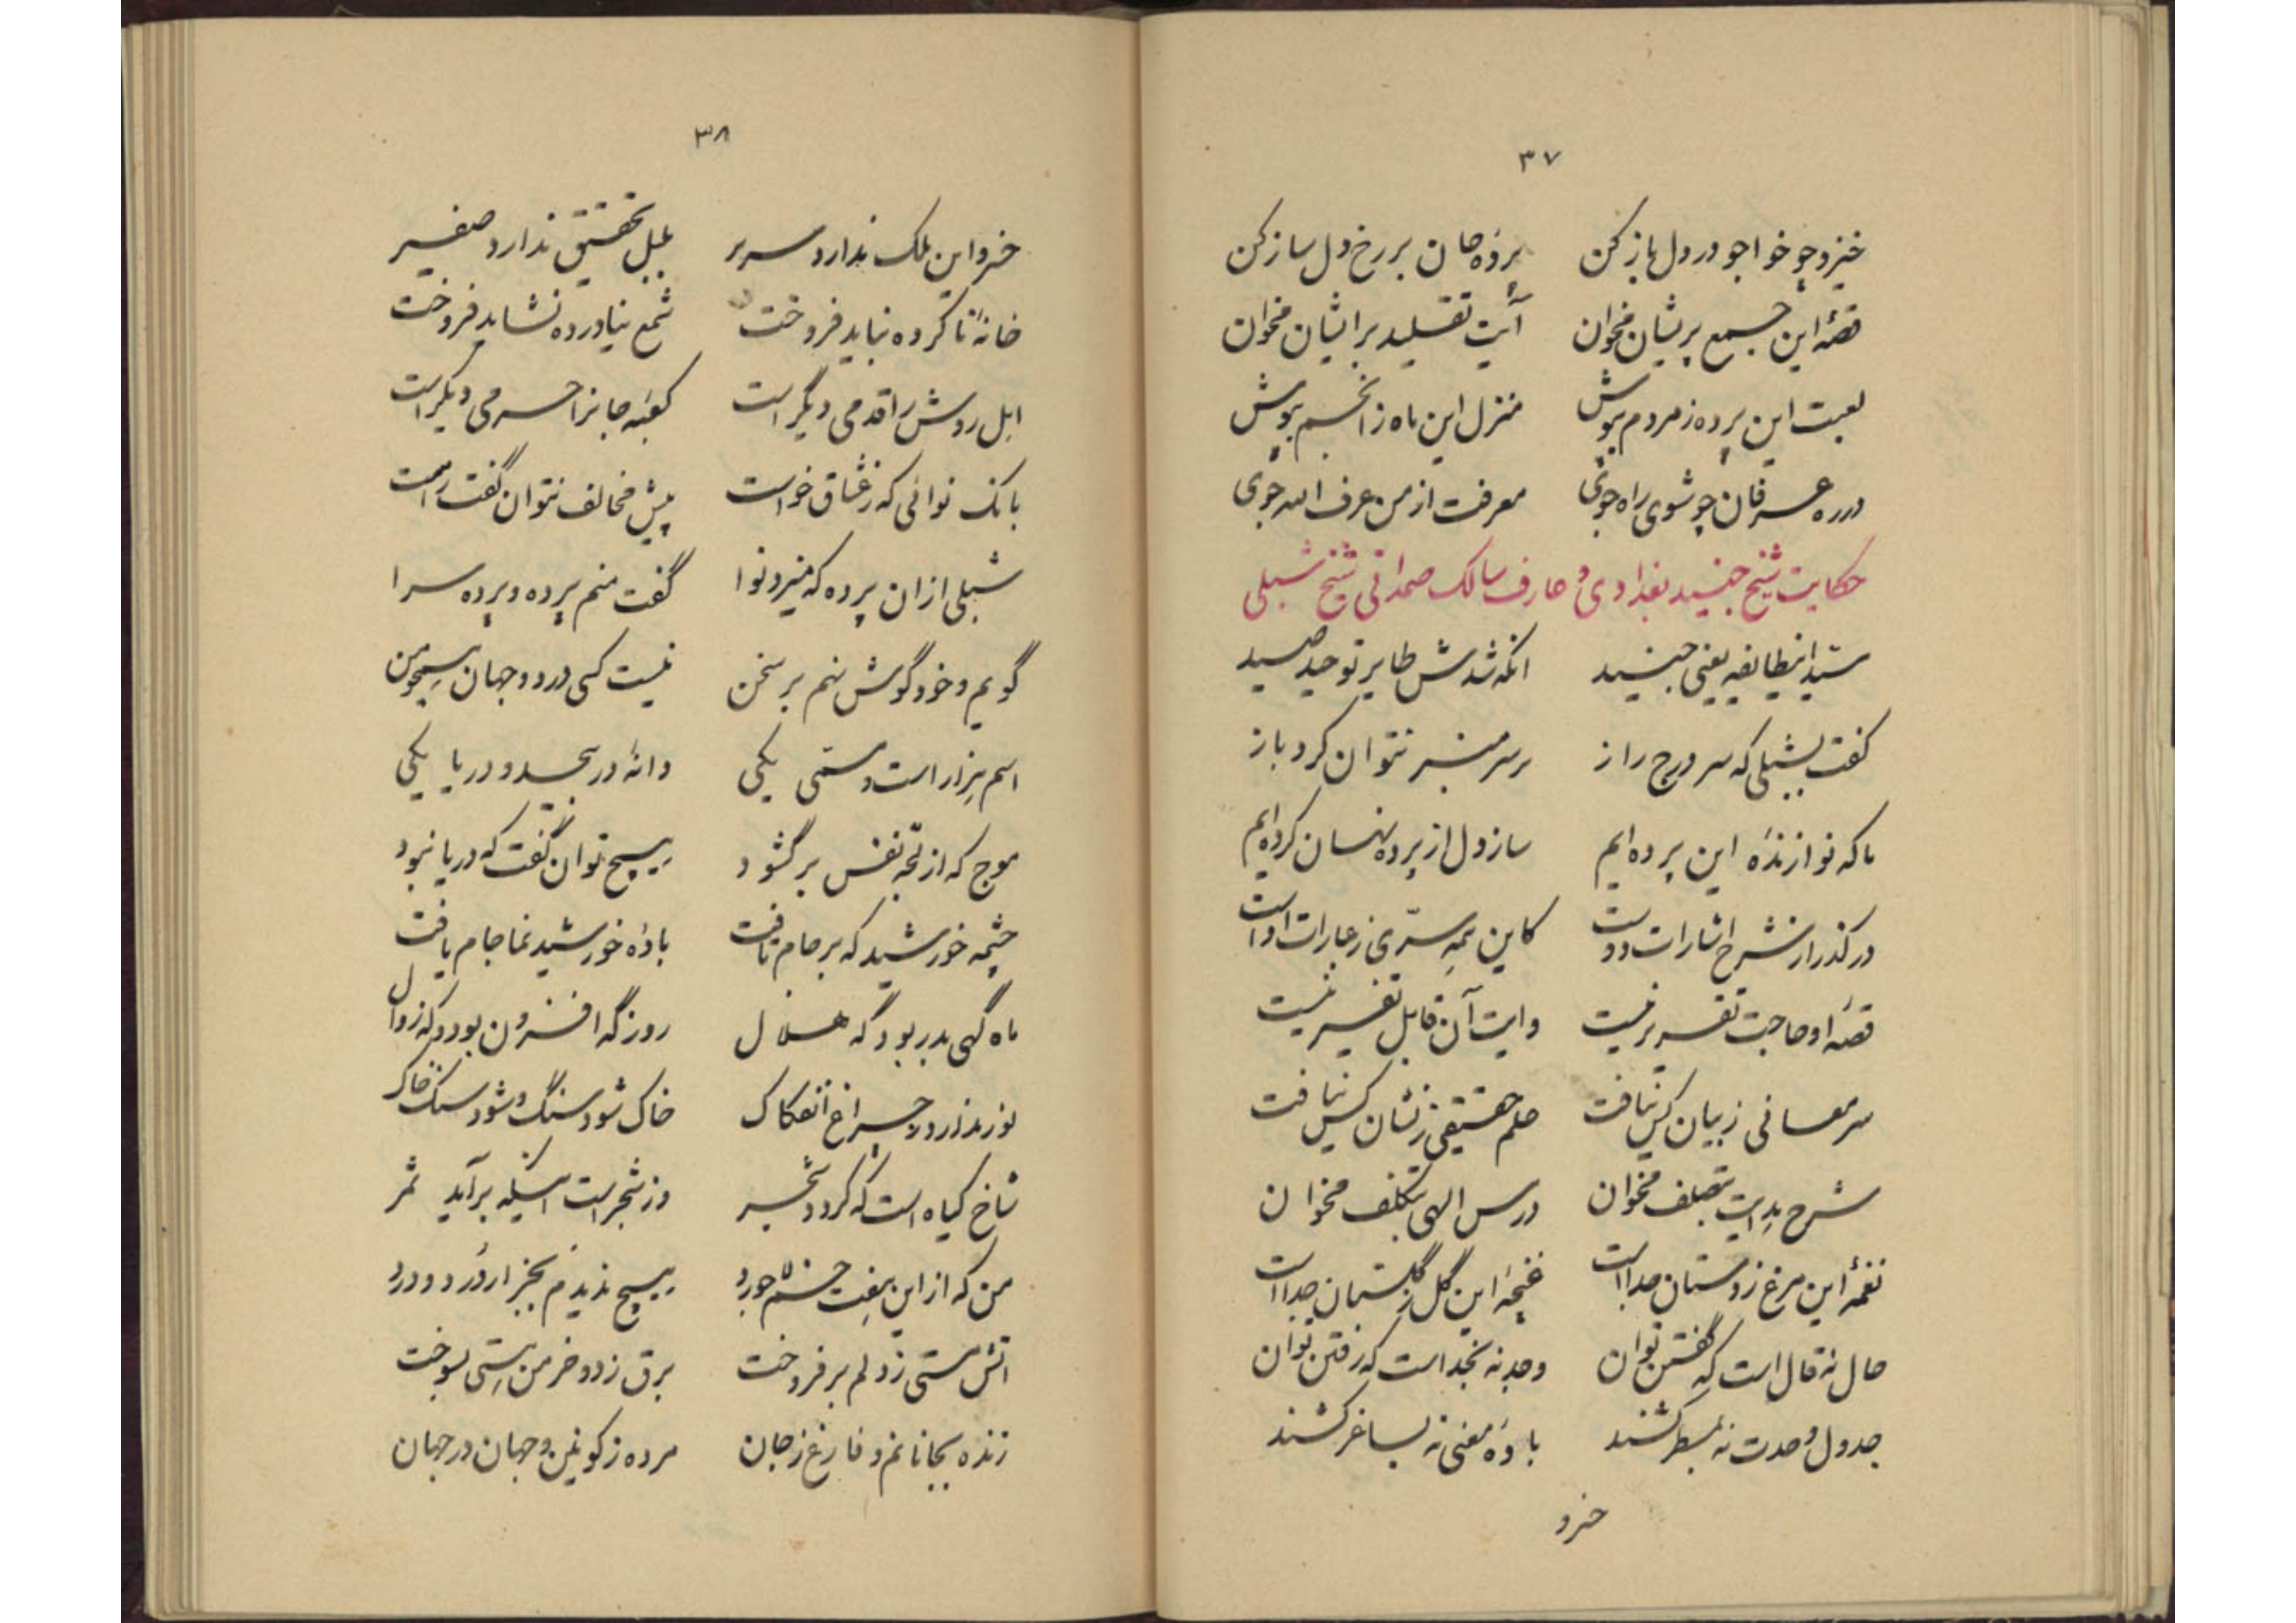 ۳۷
خیز و چو خواجو در دل باز کن پردهٔ جان بر رخ دل ساز کن
قصهٔ این جمع پریشان مخوان آیت تقلید بر ایشان مخوان
لعبت این پرده ز مردم بپوش منزل این ماه ز انجم بپوش
در ره عرفان چو شوی راه جوی معرفت از من عرف الله جوی
حکایت شیخ جنید بغدادی و عارف سالک صمدانی شیخ شبلی
سید اینطایفه یعنی جنید انکه شدش طایر توحید صید
گفت بشبلی که سر درج راز بر سر منبر نتوان کرد باز
ما که نوازندهٔ این پرده‌ایم ساز دل از پرده نهان کرده‌ایم
درکذر از شرح اشارات دوست کاین همه سرّی ز عبارات اوست
قصهٔ او حاجت تقریر نیست وایت آن قابل تفسیر نیست
سر معانی ز بیان کس نیافت علم حقیقی ز نشان کس نیافت
شرح هدایت بتصلف مخوان درس الهی بتکلف مخوان
نغمهٔ این مرغ ز دستان جداست غنچهٔ این گل ز گلستان جداست
حال نه قال است که گفتن توان وجد نه نجد است که رفتن توان
جدول وحدت نه بمسطر کشند بادهٔ معنی نه بساغر کشند
خسرو
۳۸
خسرو این ملک ندارد سریر بلبل تحقیق ندارد صفیر
خانهٔ ناکرده نباید فروخت شمع نیاورده نشاید فروخت
اهل روش را قدمی دیگر است کعبه جانرا حرمی دیکر است
بانک نوائی که ز عشاق خواست پیش مخالف نتوان گفت راست
شبلی ازان پرده که میزد نوا گفت منم پرده و پرده سرا
گویم و خود گوش نهم بر سخن نیست کسی در دو جهان همچو من
اسم هزار است و مسمی یکی دانهٔ در بیحد و دریا یکی
موج که از لجه نفس بر گشود هیچ توان گفت که دریا نبود
چشمه خورشید که بر جام تافت بادهٔ خورشید نما جام یافت
ماه گهی بدر بود گه هلال روز گه افزون بود و که زوال
نور ندارد ز چراغ انفکاک خاک شود سنگ و شود سنک خاک
شاخ کیاه است که کردد شجر وز شجر است اینکه برآید ثمر
من که از این هفت خم لاجورد هیچ ندیدم بجز از دُرد و درد
اتش مستی ز دلم بر فروخت برق زد و خرمن هستی بسوخت
زنده بجانانم و فارغ ز جان مرده ز کونین و جهان در جهان